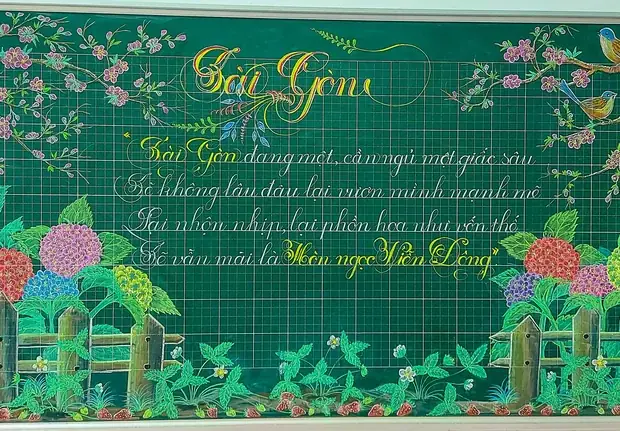 Sài Gòn
"Sài Gòn đang mệt, cần ngủ một giấc sâu
Sẽ không lâu đâu lại vươn mình mạnh mẽ
Lại nhộn nhịp, lại phồn hoa như vốn thế
Sẽ vẫn mãi là Hòn ngọc Viễn Đông"